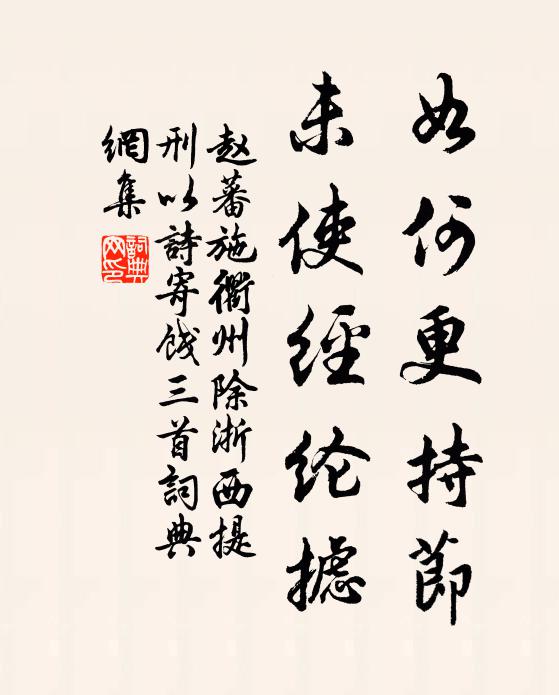 如何更持節
未使經纶攄
赵蕃施衢州除浙西提
刑以詩寄餞三首詞典
網集
詞典網印